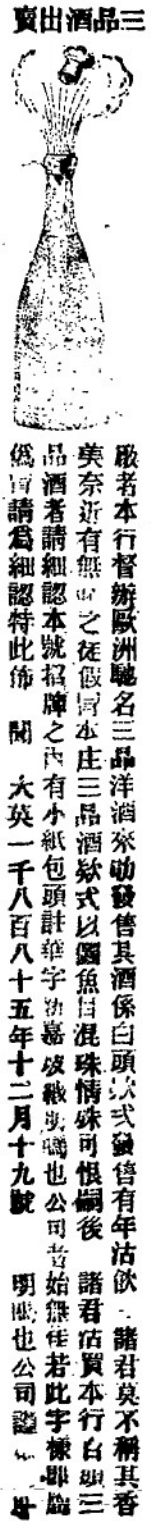 三品酒出賣
啟者本行督辦歐洲馳名三品洋酒來叻發售其酒係白頭欵式發售有年沽飲 諸君莫不稱其香
美奈近有無之徒假冒本庄三品酒欵式以圖魚目混珠情殊可恨嗣後 諸君沽買本行白頭三
品酒者請細認本號招牌之內有小紙包頭註華字叻嘉坡也公司者始無若此字樣即
偽冒請爲細認特此佈 聞 大英一千八百八十五年十二月十九號 明也公司謹